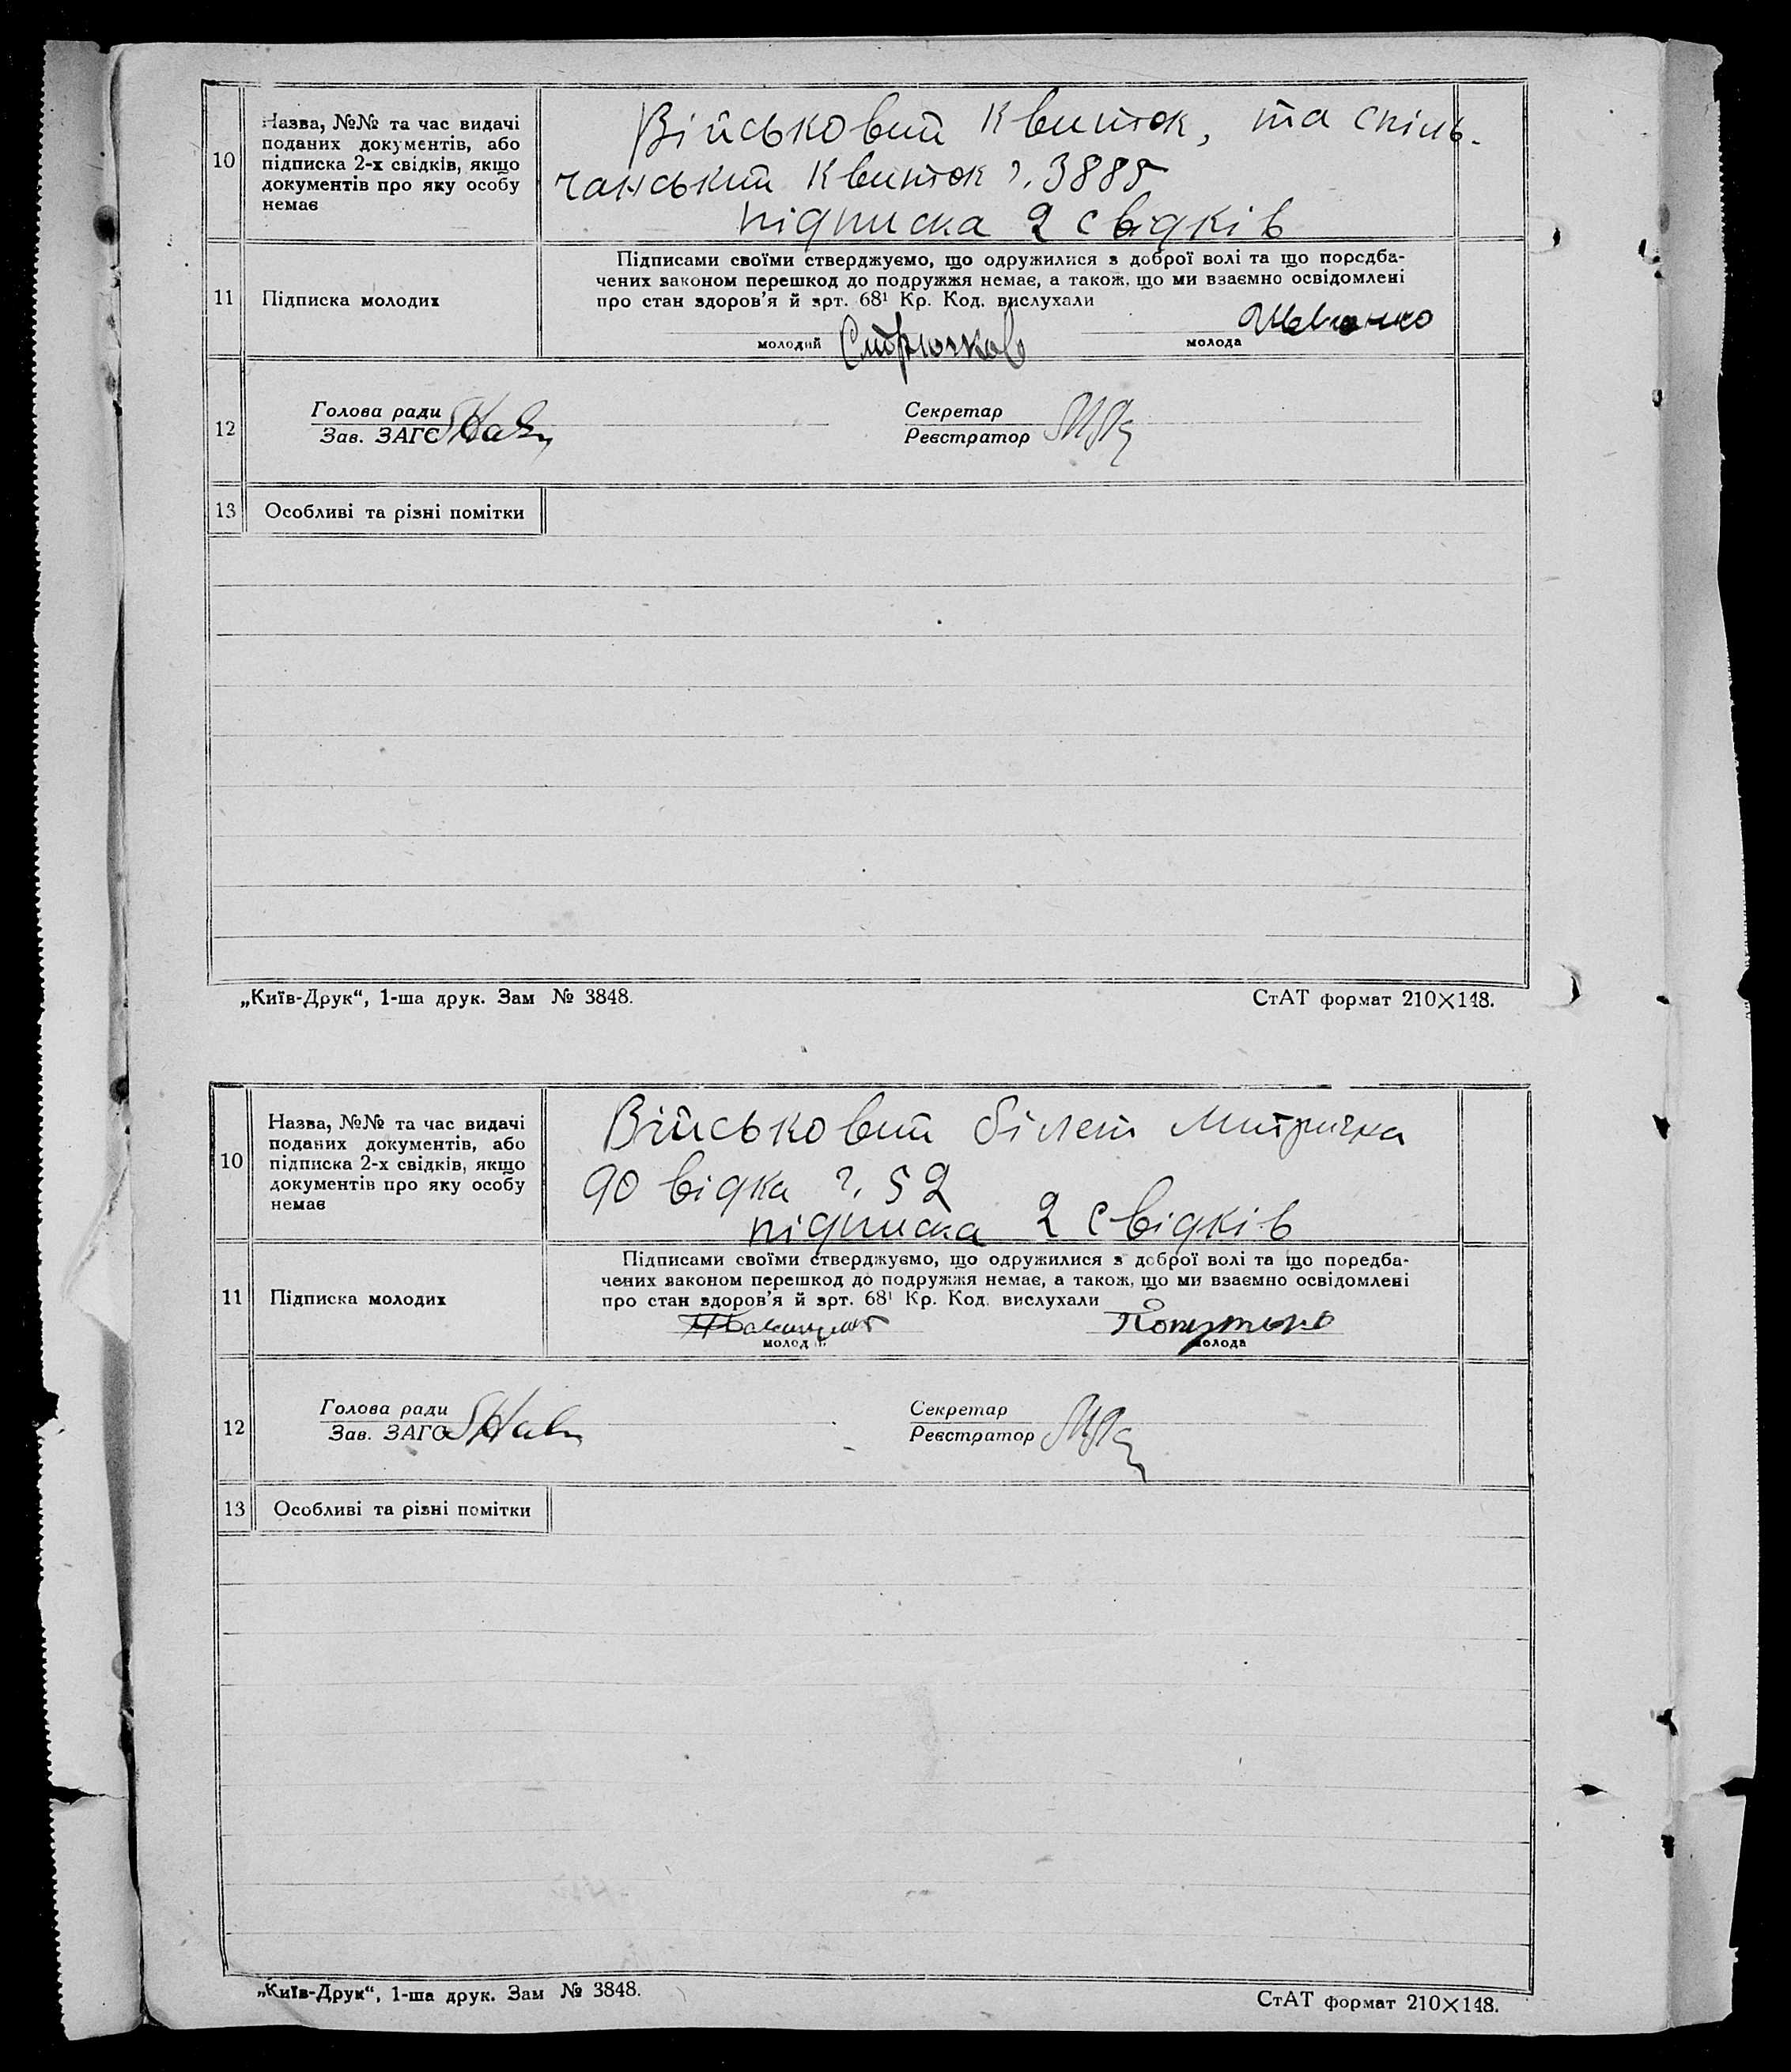 10
Назва, №№ та час видачі
поданих документів, або
підписка 2-х свідків, якщо
документів про яку особу
немає
Військовий Квиток, та спіль-
чанський Квиток ч. 3885
підписка 2 свідків
11
Підписка молодих
Підписами своїми стверджуємо, що одружилися з доброї волі та що порєдба-
чених законом перешкод до подружжя немає, а також, що ми взаємно освідомлені
про стан здоров'я й арт. 68¹ Кр. Код. вислухали
молодий Стрючков
молода Шевченко
12
Голова ради
Зав. ЗАГС
Секретар
Реєстратор
13
Особливі та різні помітки
„Київ-Друк“, 1-ша друк. Зам № 3848.
СтАТ формат 210×148.
10
Назва, №№ та час видачі
поданих документів, або
підписка 2-х свідків, якщо
документів про яку особу
немає
Військовий білет
довідка ч. 52
підписка 2 свідків
11
Підписка молодих
Підписами своїми стверджуємо, що одружилися з доброї волі та що поредба-
чених законом перешкод до подружжя немає, а також, що ми взаємно освідомлені
про стан здоров'я й арт. 68¹ Кр. Код. вислухали
молодий
молода
12
Голова ради
Зав. ЗАГС
Секретар
Реєстратор
13
Особливі та різні помітки
„Київ-Друк“, 1-ша друк. Зам № 3848.
СтАТ формат 210×148.